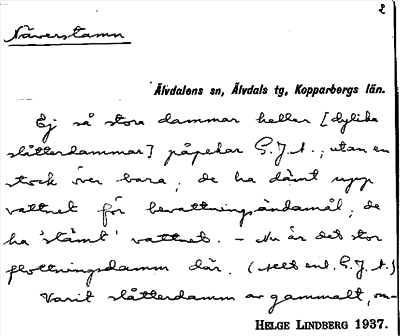 2
Näverstamn
Älvdalens sn, Älvdals tg, Kopparbergs län.
Ej så stora dammar heller [dylika
slåtterdammar] påpekar G.J.A.; utan en
stock över bara; de ha dämt upp
vattnet för bevattningsändamål; de
ha 'stämt' vattnet. – Nu är det stor
flottningsdamm där. (allt enl. G.J.A.)
Varit slåtterdamm av gammalt, om-
HELGE LINDBERG 1937.